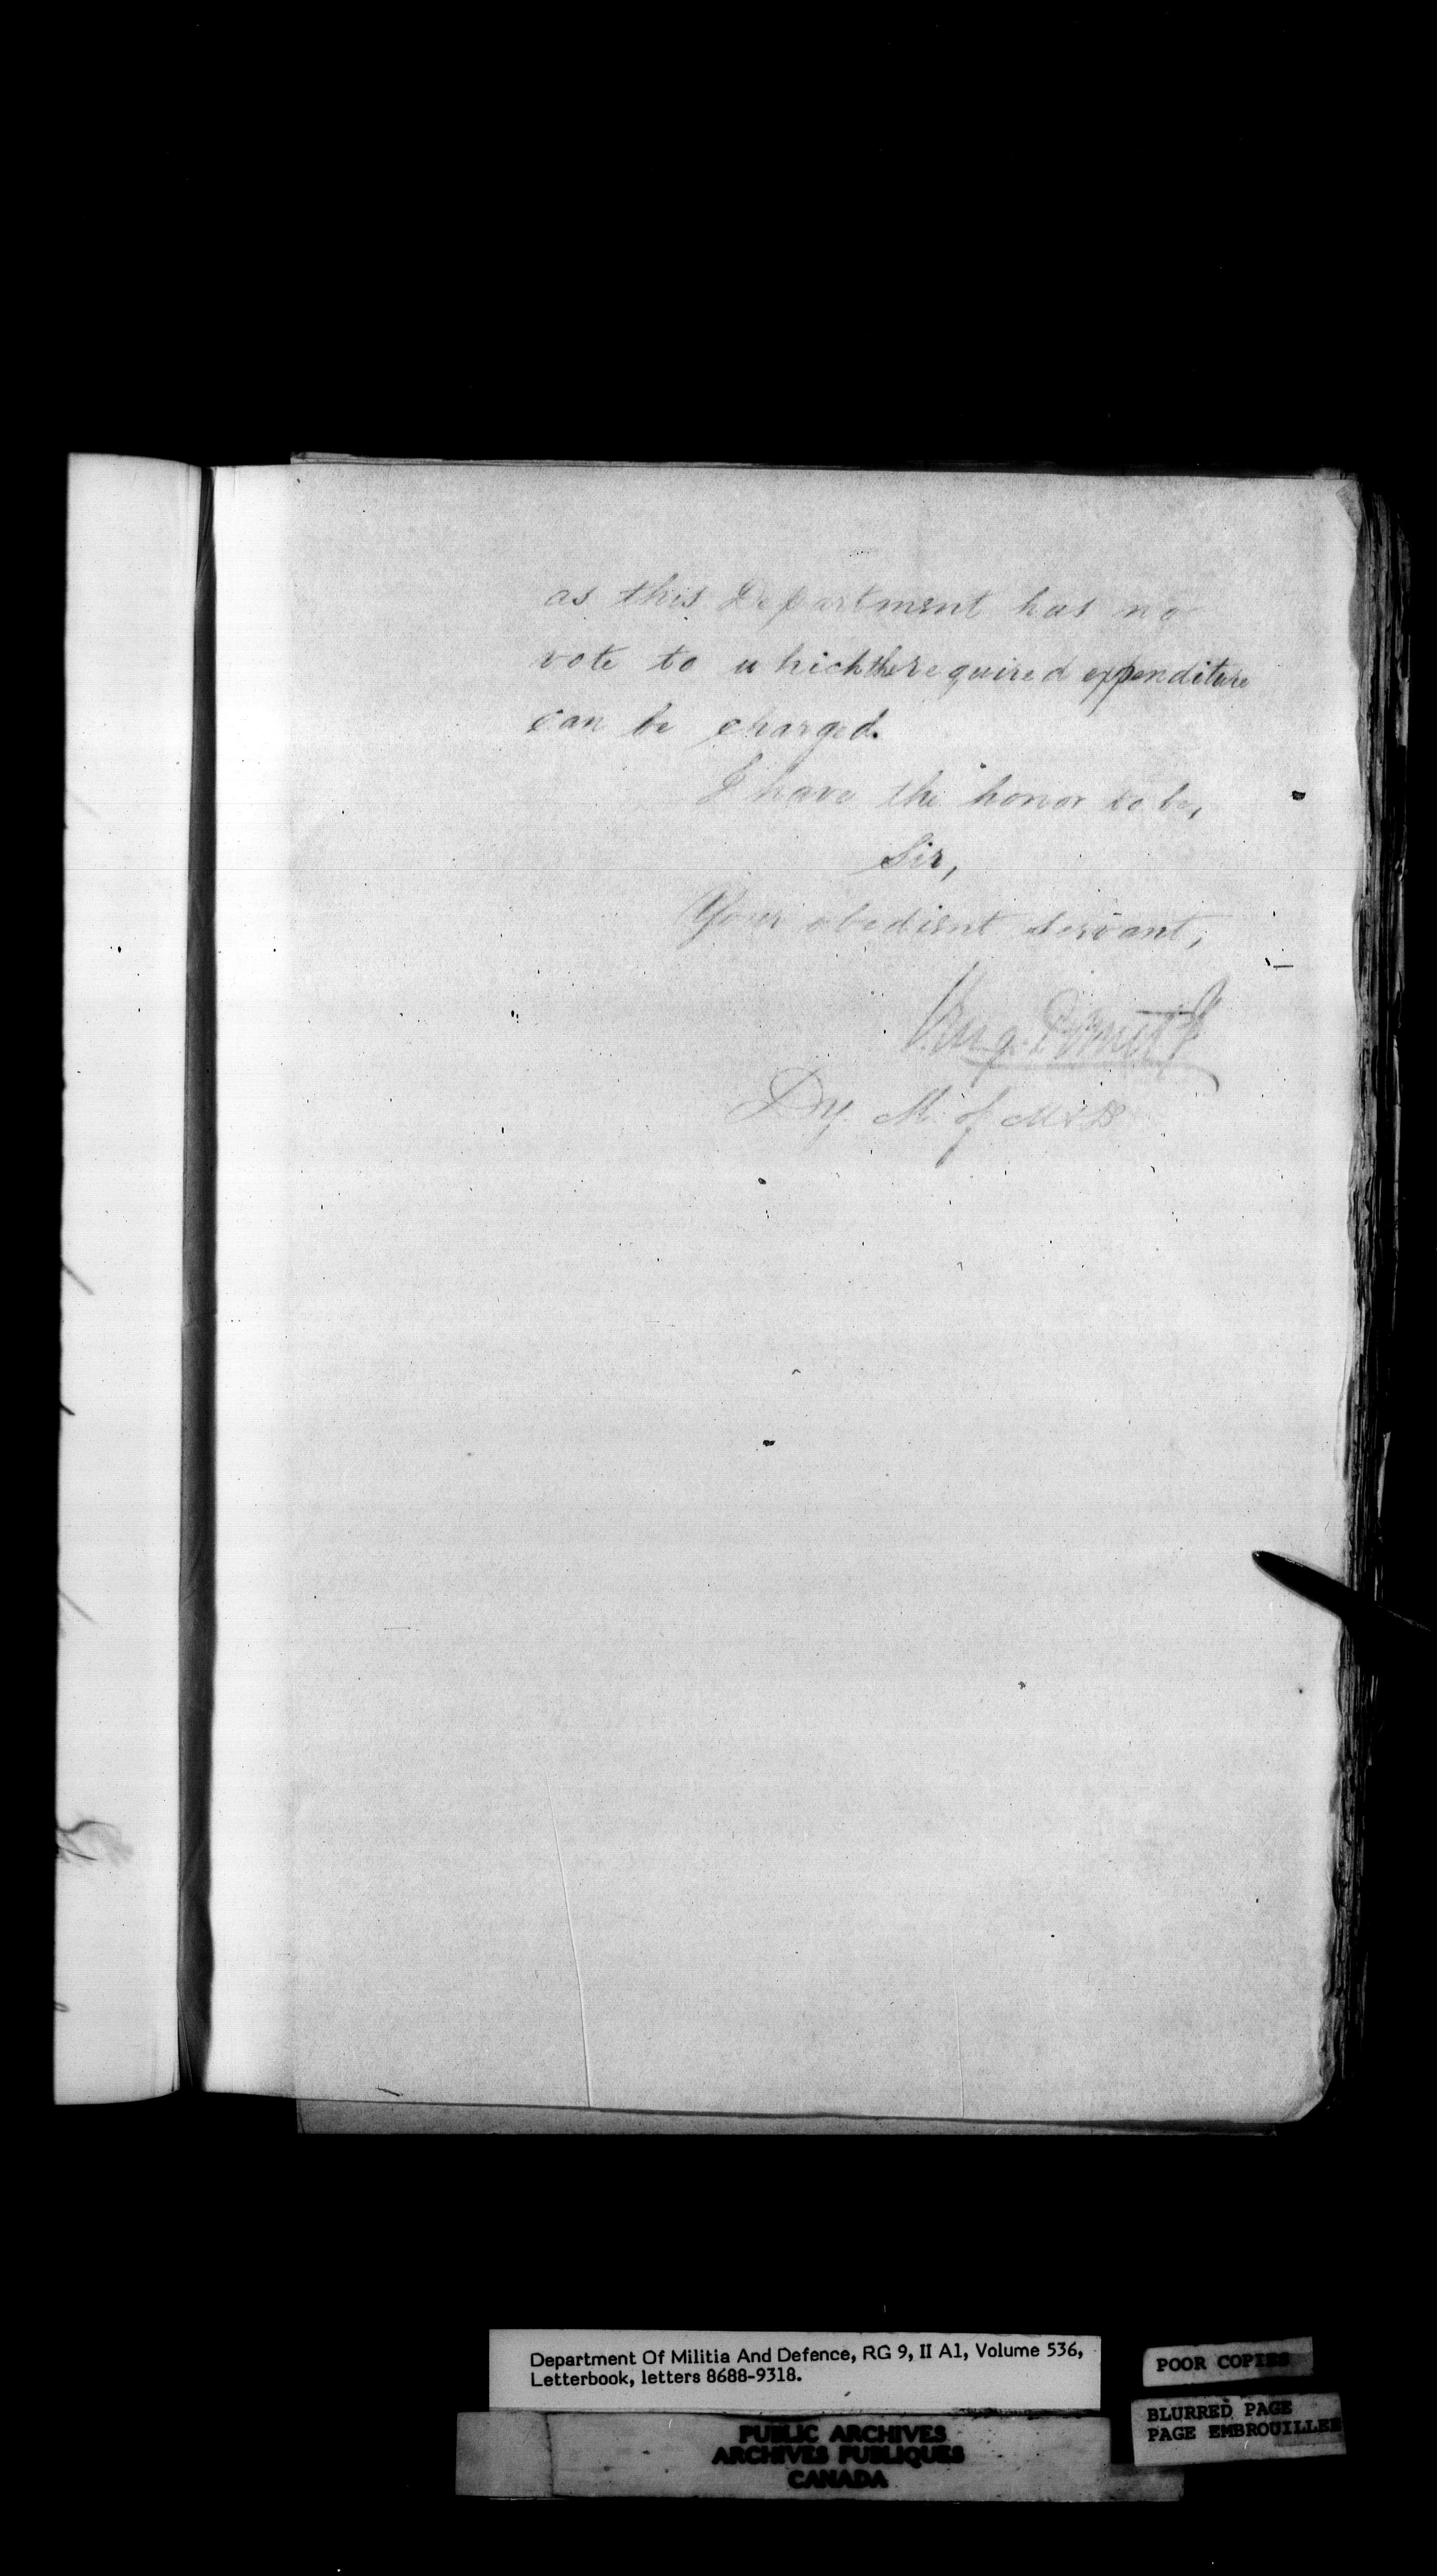 as this Department has no
vote to which the required expenditure
can be charged.
I have the honor to be,
Sir,
Your obedient servant,
Dy. M. of M & D
Department Of Militia And Defence, RG 9, II A1, Volume 536,
Letterbook, letters 8688-9318.
POOR COPIES
BLURRED PAGE
PAGE EMBROUILLEE
PUBLIC ARCHIVES
ARCHIVES PUBLIQUES
CANADA